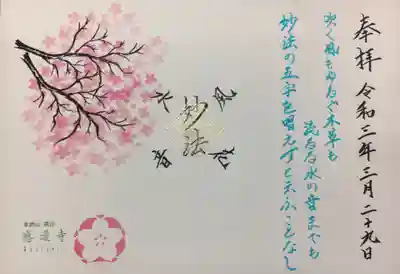 奉拝 令和三年三月二十九日
吹く風もゆるぐ木草も
流るる水の音までも
妙法の五字を唱えずと云ふことなし
風
妙法